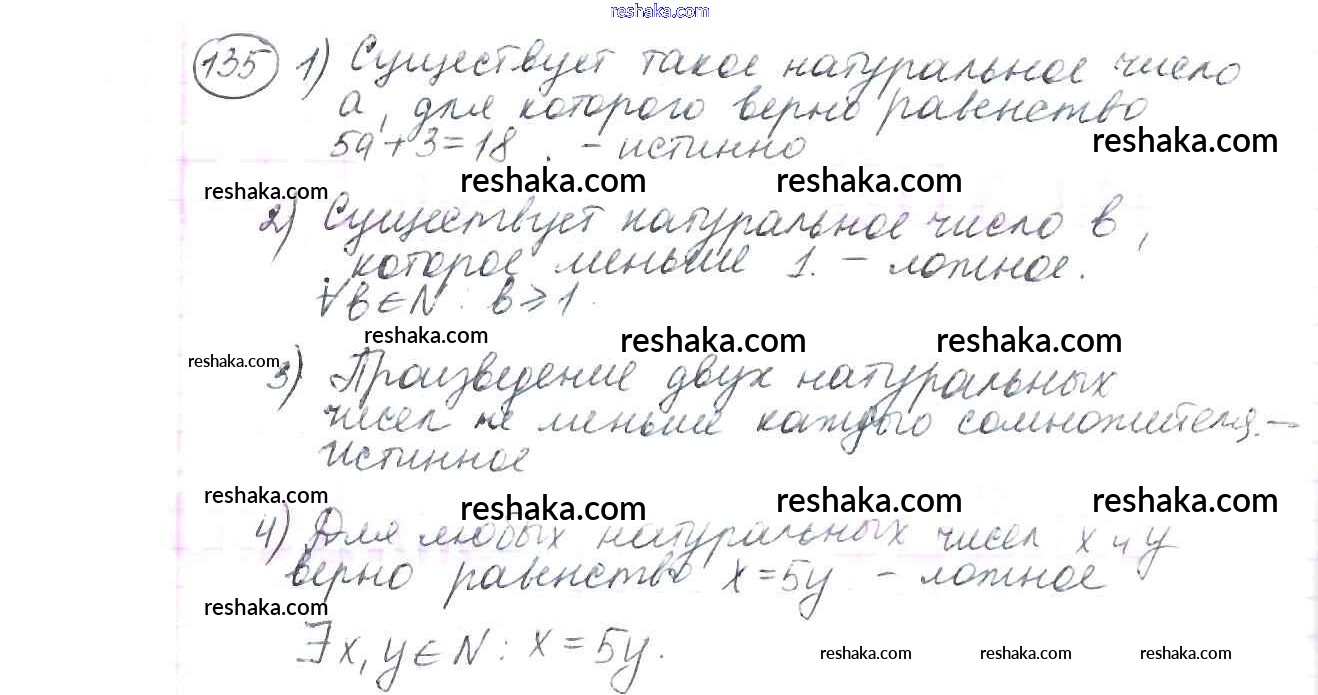 reshaka.com
135 1) Существует такое натуральное число
a, для которого верно равенство
5a+3=18. - истинно
reshaka.com
reshaka.com reshaka.com reshaka.com
2) Существует натуральное число b,
которое меньше 1. - ложное.
∀b∈N: b⩾1.
reshaka.com reshaka.com reshaka.com
reshaka.com
3) Произведение двух натуральных
чисел не меньше каждого сомножителя. -
Истинное
reshaka.com reshaka.com reshaka.com reshaka.com
4) Для любых натуральных чисел x и y
верно равенство x=5y - ложное
reshaka.com
∃x,y∈N: x=5y.
reshaka.com reshaka.com reshaka.com